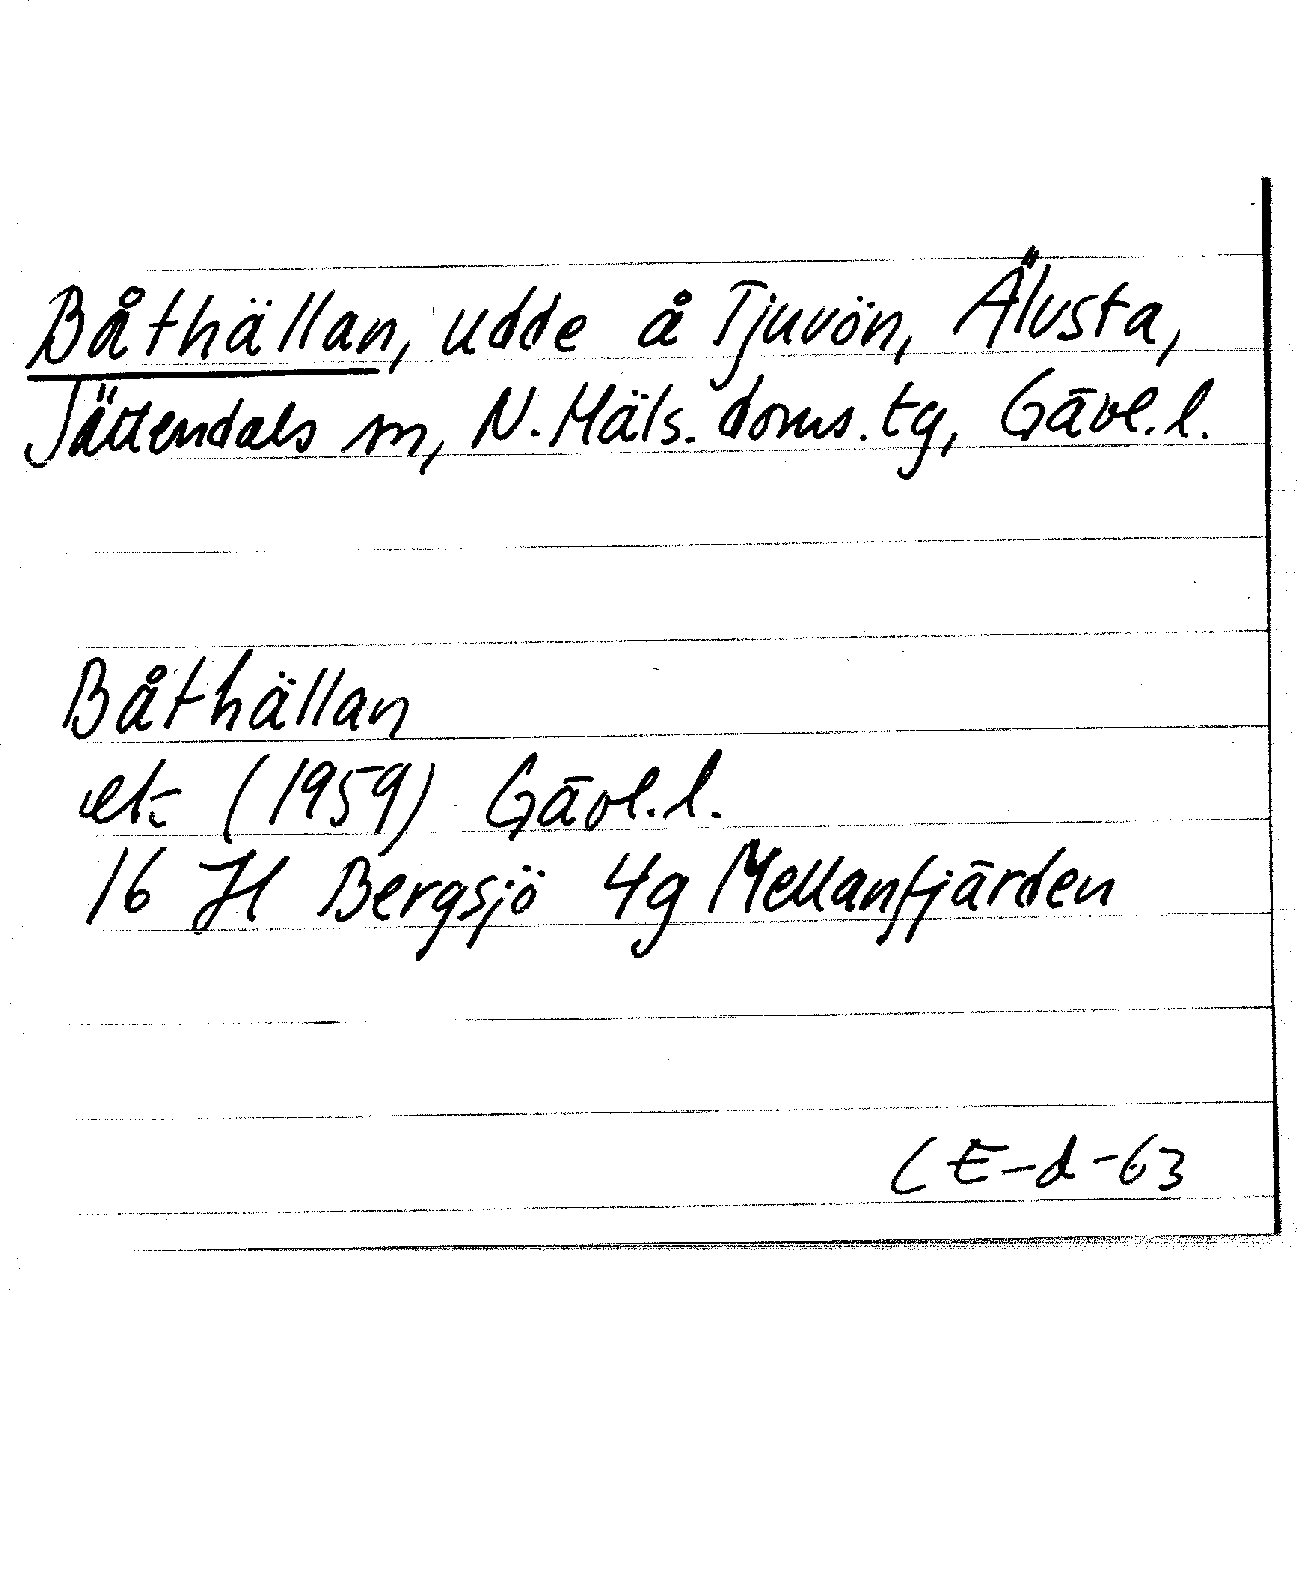 Båthällan, udde å Tjuvön, Älvsta,
Jättendals sn, N. Häls. doms. tg, Gävl. l.
Båthällan
ek (1959) Gävl. l.
16 H Bergsjö 4g Mellanfjärden
CE-d-63